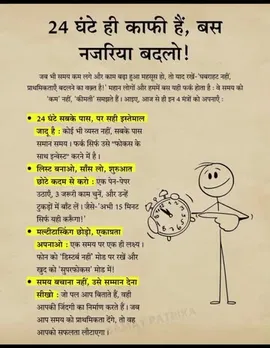 24 घंटे ही काफी हैं, बस
नजरिया बदलो!
जब भी समय कम लगे और काम बढ़ा हुआ महसूस हो, तो याद रखें-'घबराहट नहीं,
प्राथमिकताएँ बदलने का वक़्त है!' महान लोगों और हममें बस यही फर्क होता है: वे समय को
'कम' नहीं, 'कीमती' समझते हैं। आइए, आज से ही इन 4 मंत्रों को अपनाएँ:
• 24 घंटे सबके पास, पर सही इस्तेमाल
जादू है : कोई भी व्यस्त नहीं, सबके पास
समान समय। फर्क सिर्फ उसे "फोकस के
साथ इन्वेस्ट" करने में है।
• लिस्ट बनाओ, साँस लो, शुरुआत
छोटे कदम से करो : एक पेन-पेपर
उठाएँ, 3 जरूरी काम चुनें, और उन्हें
टुकड़ों में बाँट लें। जैसे-'अभी 15 मिनट
सिर्फ यही करूँगा!'
• मल्टीटास्किंग छोड़ो, एकाग्रता
अपनाओ : एक समय पर एक ही लक्ष्य।
फोन को 'डिस्टर्ब नहीं' मोड पर रखें और
खुद को 'सुपरफोकस' मोड में!
• समय बचाना नहीं, उसे सम्मान देना
सीखो : जो पल आप बिताते हैं, वही
आपकी जिंदगी का निर्माण करते हैं। जब
आप समय को प्राथमिकता देंगे, तो वह
आपको सफलता लौटाएगा।